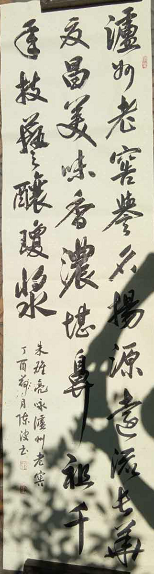 瀘州老窖誉名揚源遠流長華
夏昌美味香濃堪鼻祖千
年技藝釀瓊漿
朱雅亮咏瀘州老窖
丁酉菊月陈波书